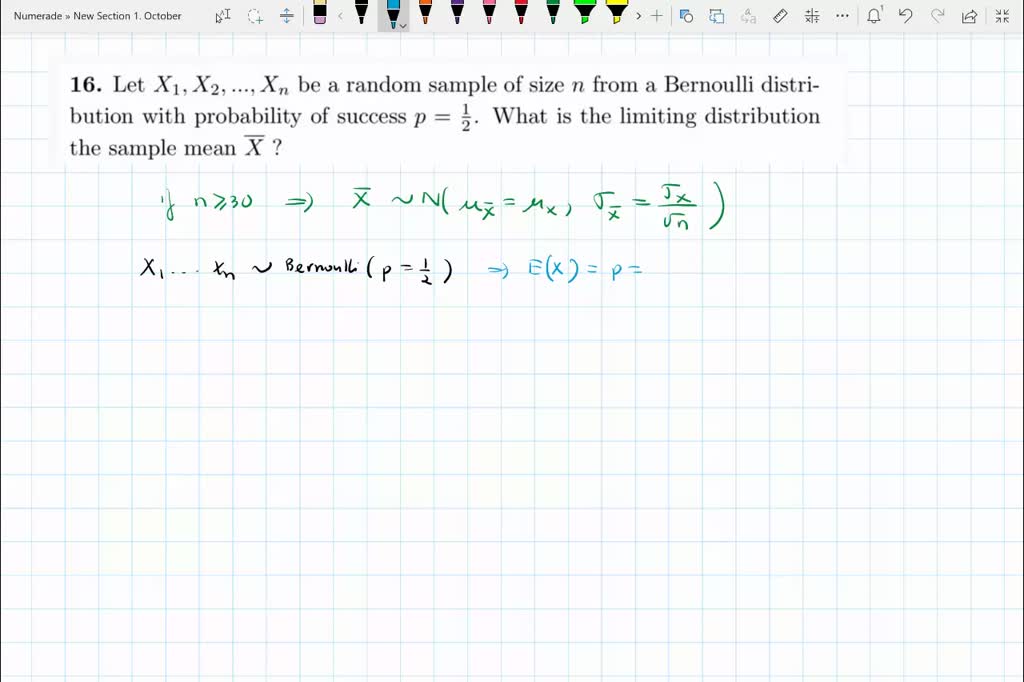 Numerade » New Section 1. October
16. Let X₁, X₂, ..., Xₙ be a random sample of size n from a Bernoulli distri-
bution with probability of success p = 1/2. What is the limiting distribution
the sample mean X̄ ?
if n ≥ 30 ⇒ X̄ ~ N( μ_x̄ = μ_x, σ_x̄ = σ_x/√n )
X₁ ... xₙ ~ Bernoulli ( p = 1/2 ) ⇒ E(X) = p =